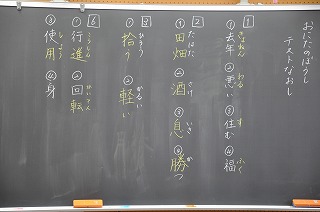 おにたのぼうし
テストなおし
1
①去年 きょねん ②悪い わる ③住む す ④福 ふく
2
①田畑 たはた ②酒 さけ ③息 いき ④勝つ か
3
①拾う ひろう ②軽い かるい
6
①行進 こうしん ②回転 かいてん
③使用 しよう ④身